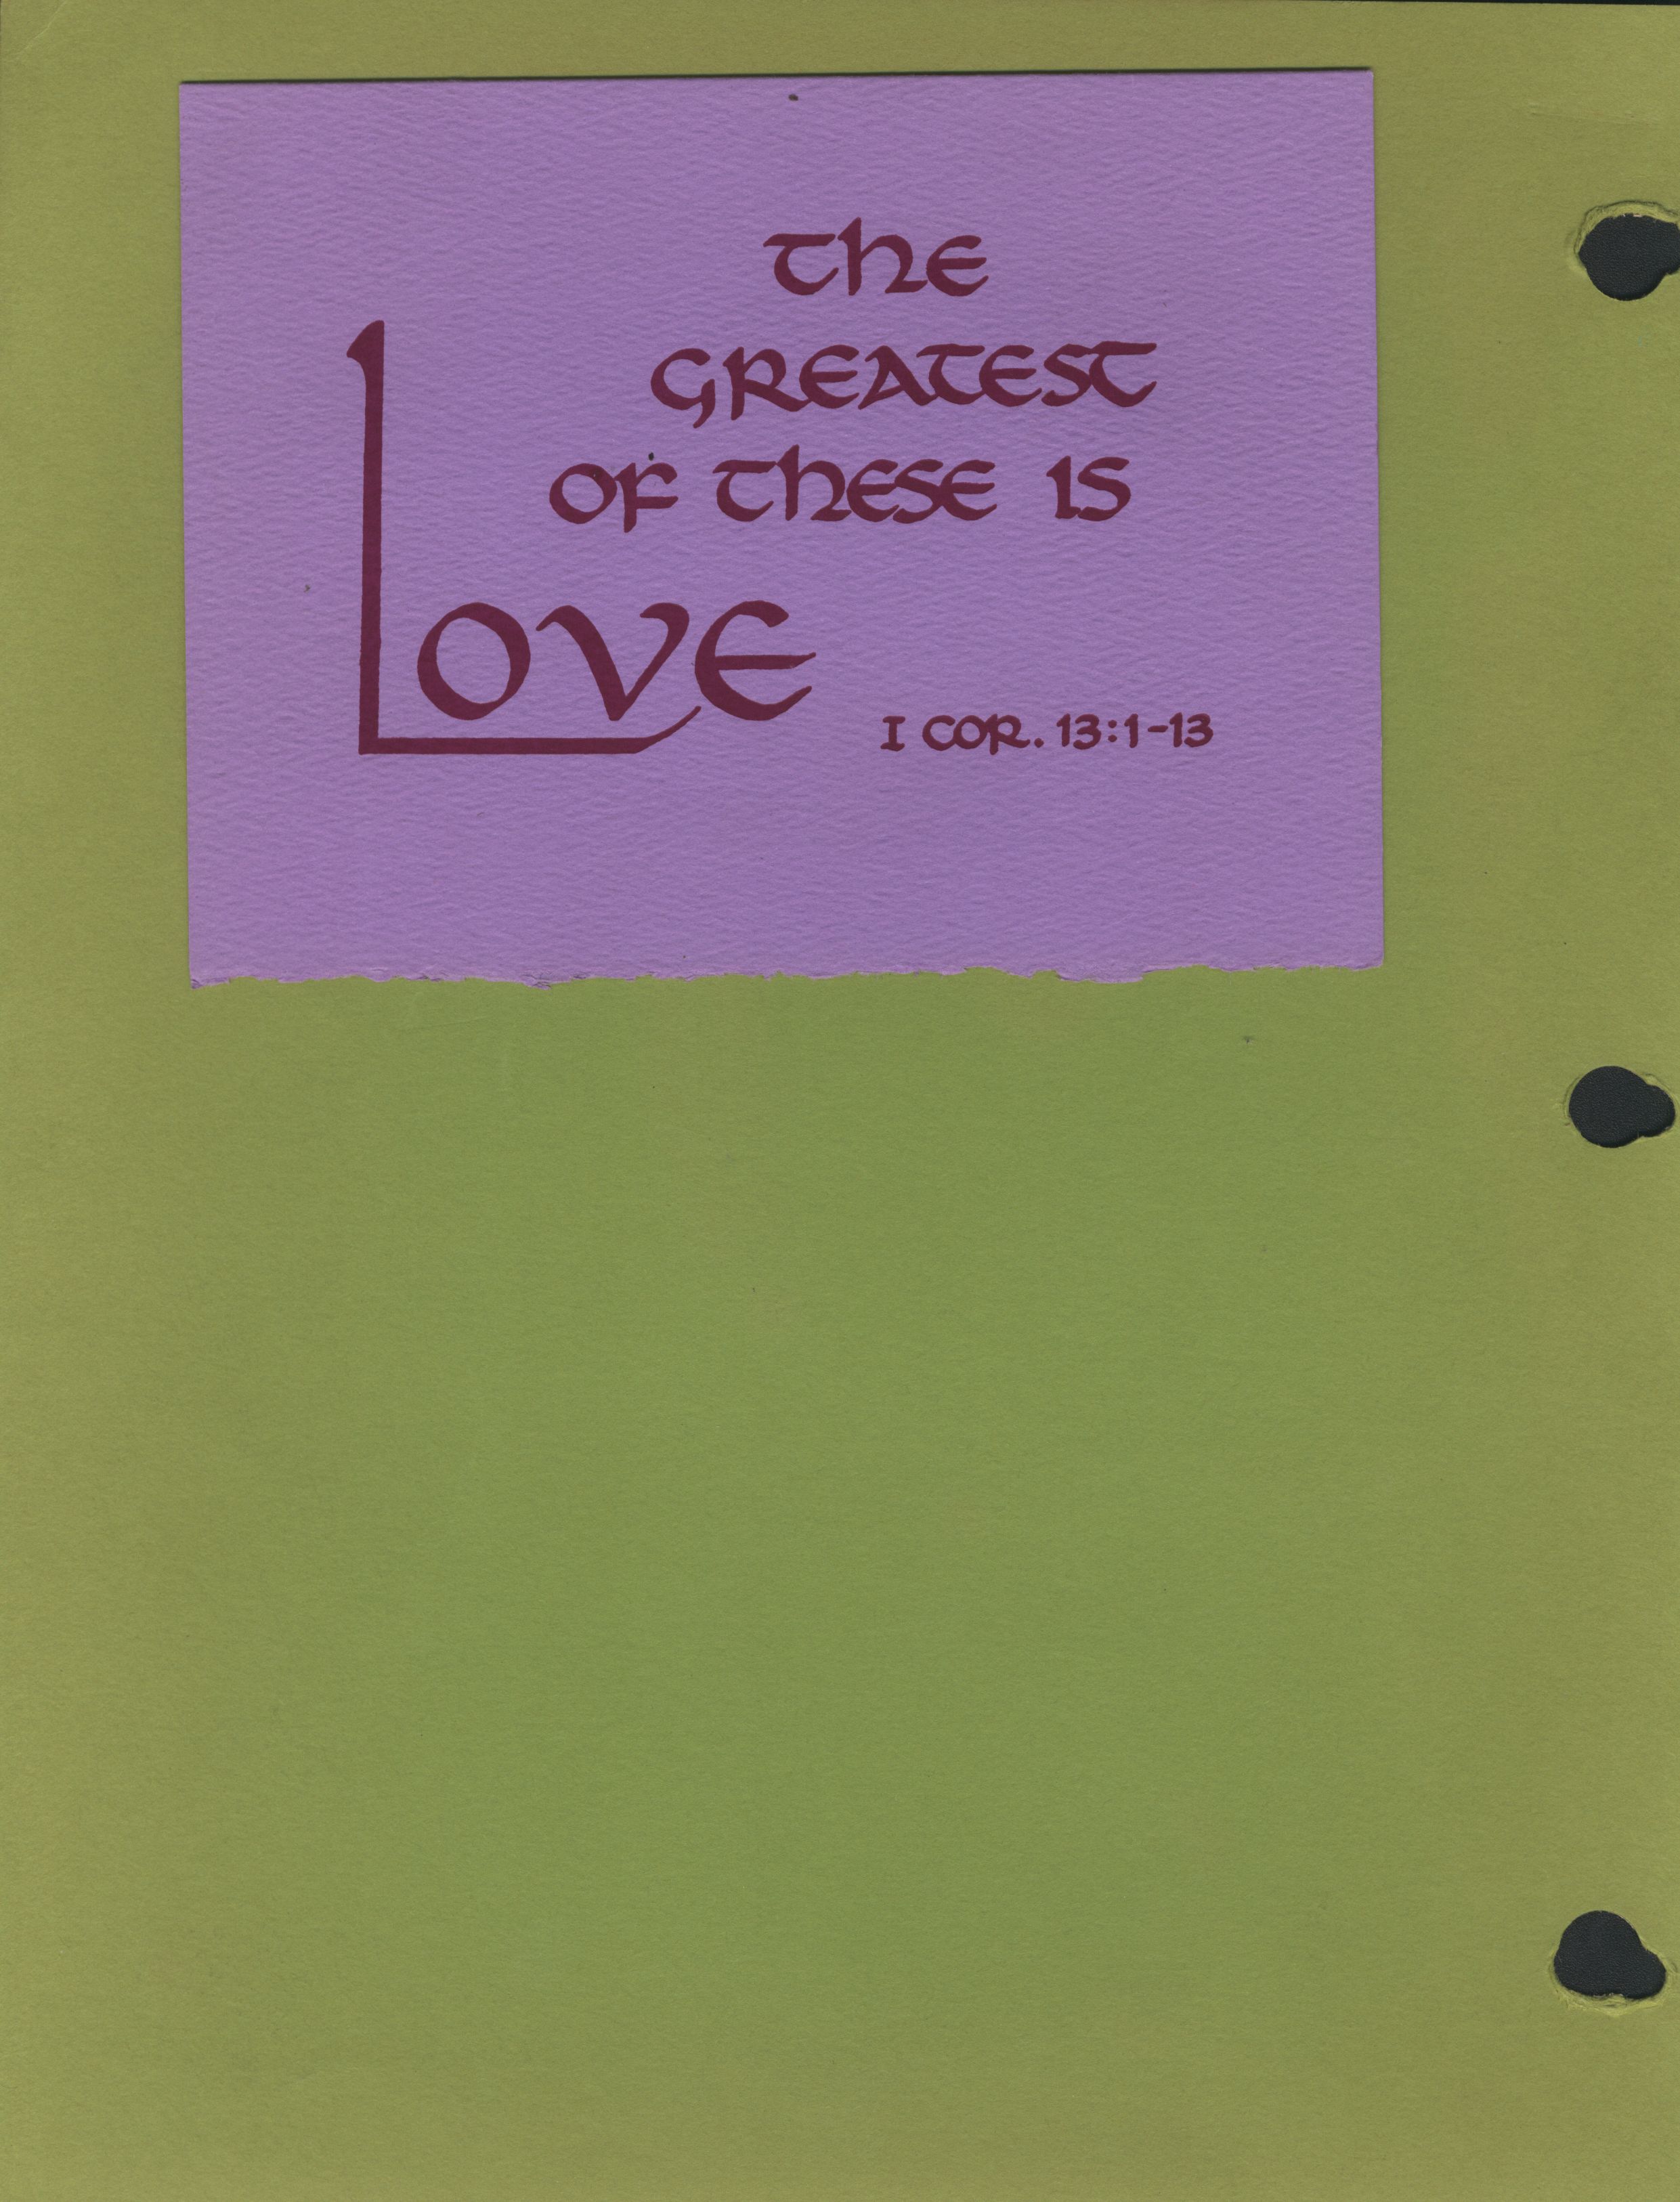 The
GREATEST
OF ThESE IS
LOVE
I COR. 13:1-13